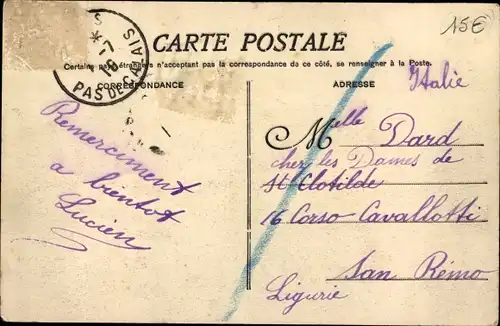 15€
CARTE POSTALE
Certains pays étrangers n'acceptant pas la correspondance de ce côté, se renseigner à la Poste.
CORRESPONDANCE
ADRESSE
PAS DE CALAIS
Italie
Remerciment
a bientot
Lucien
Melle Dard
chez les Dames de
St Clotilde
16 Corso Cavallotti
San Rémo
Ligurie